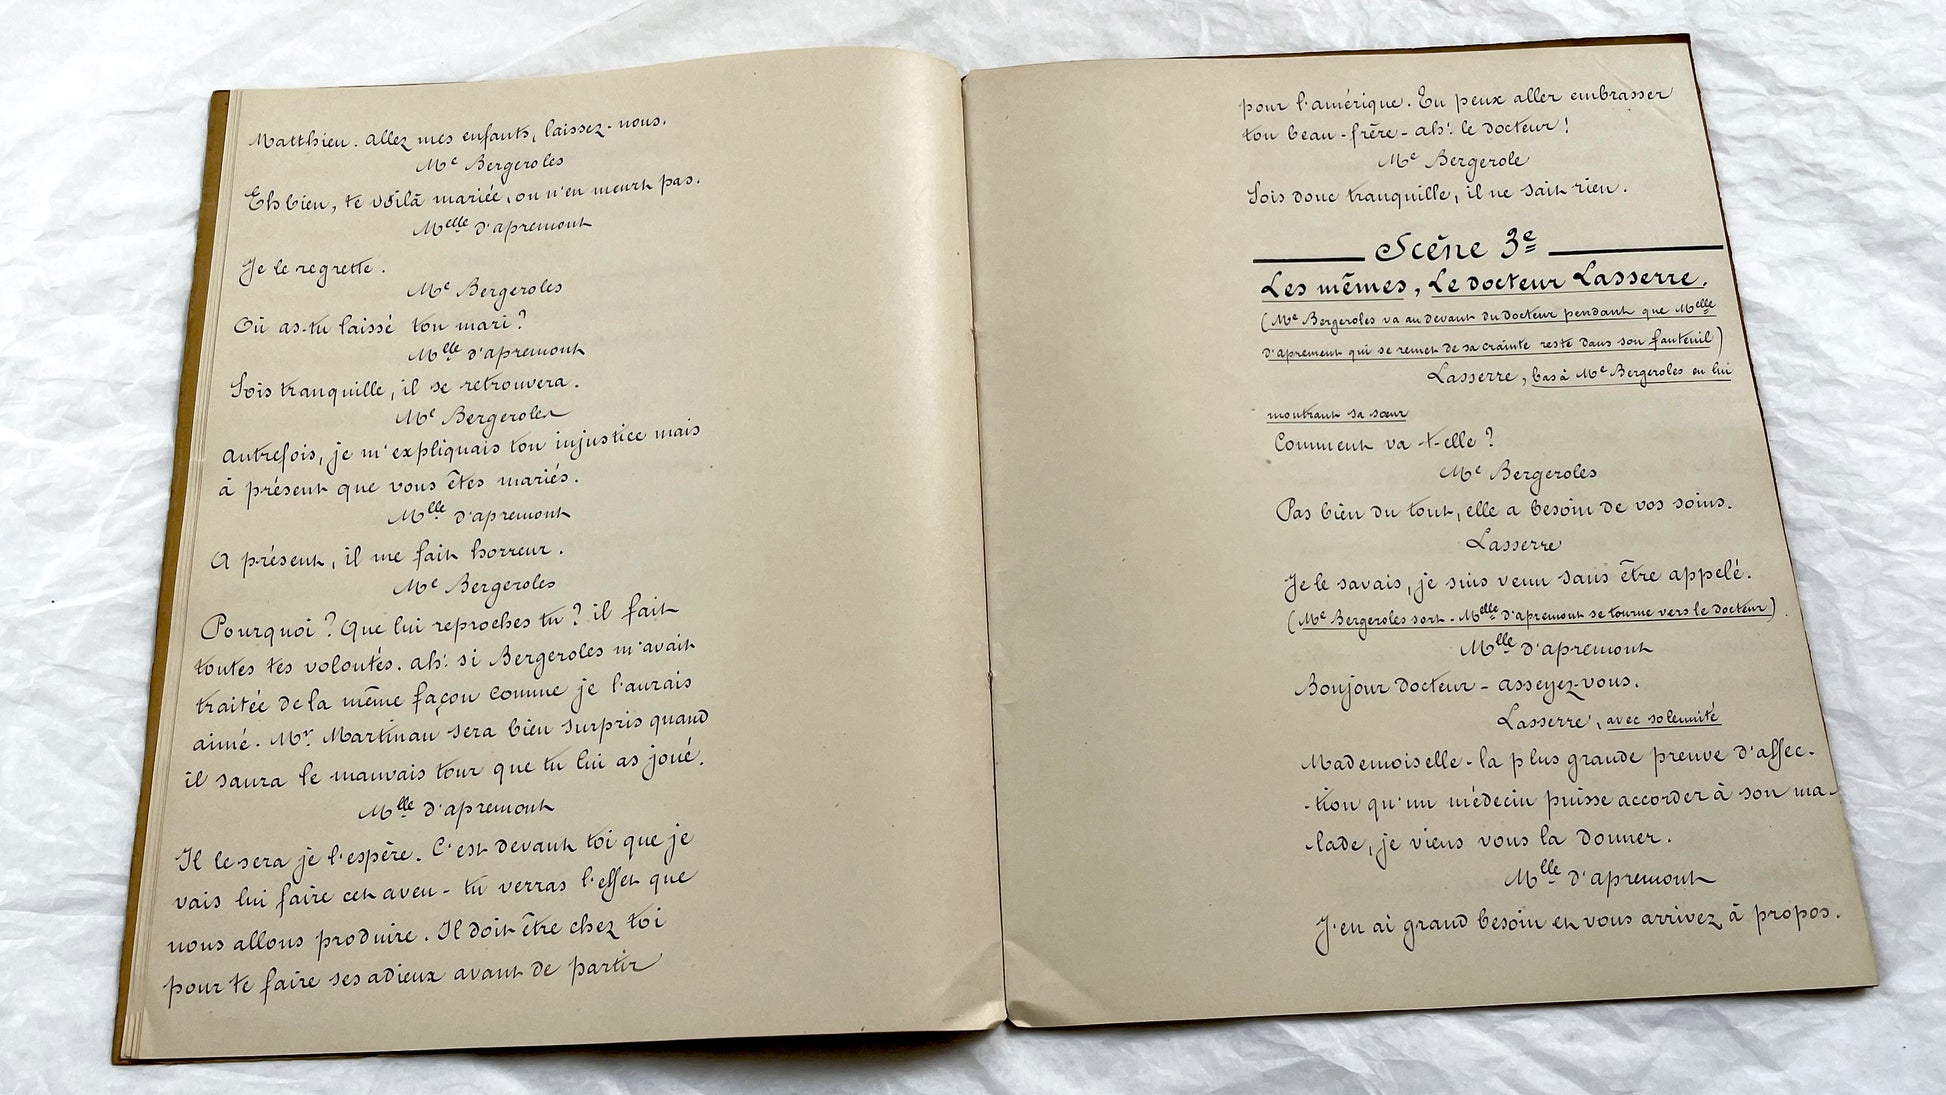 Matthieu. Allez mes enfants, laissez-nous.
Me Bergeroles
Eh bien, te voilà mariée, on n'en meurt pas.
Melle d'apremont
Je le regrette.
Me Bergeroles
Où as-tu laissé ton mari?
Melle d'apremont
Sois tranquille, il se retrouvera.
Me Bergeroles
Autrefois, je m'expliquais ton injustice mais
à présent que vous êtes mariés.
Melle d'apremont
A présent, il me fait horreur.
Me Bergeroles
Pourquoi? Que lui reproches tu? il fait
toutes tes volontés. ah! si Bergeroles m'avait
traitée de la même façon comme je l'aurais
aimé. Mr Martinau sera bien surpris quand
il saura le mauvais tour que tu lui as joué.
Melle d'apremont
Il le sera je l'espère. C'est devant toi que je
vais lui faire cet aveu - tu verras l'effet que
nous allons produire. Il doit être chez toi
pour te faire ses adieux avant de partir
pour l'amérique. Tu peux aller embrasser
ton beau-frère - ah! le docteur!
Me Bergerole
Sois donc tranquille, il ne sait rien.
Scène 3e
Les mêmes, Le docteur Lasserre.
(Me Bergeroles va au devant du docteur pendant que Melle
d'apremont qui se remet de sa crainte reste dans son fauteuil)
Lasserre, bas à Me Bergeroles en lui
montrant sa sœur
Comment va-t-elle?
Me Bergeroles
Pas bien du tout, elle a besoin de vos soins.
Lasserre
Je le savais, je suis venu sans être appelé.
(Me Bergeroles sort. Melle d'apremont se tourne vers le docteur).
Melle d'apremont
Bonjour docteur - asseyez-vous.
Lasserre, avec solennité
Mademoiselle - la plus grande preuve d'affec-
-tion qu'un médecin puisse accorder à son ma-
-lade, je viens vous la donner.
Melle d'apremont
J'en ai grand besoin et vous arrivez à propos.